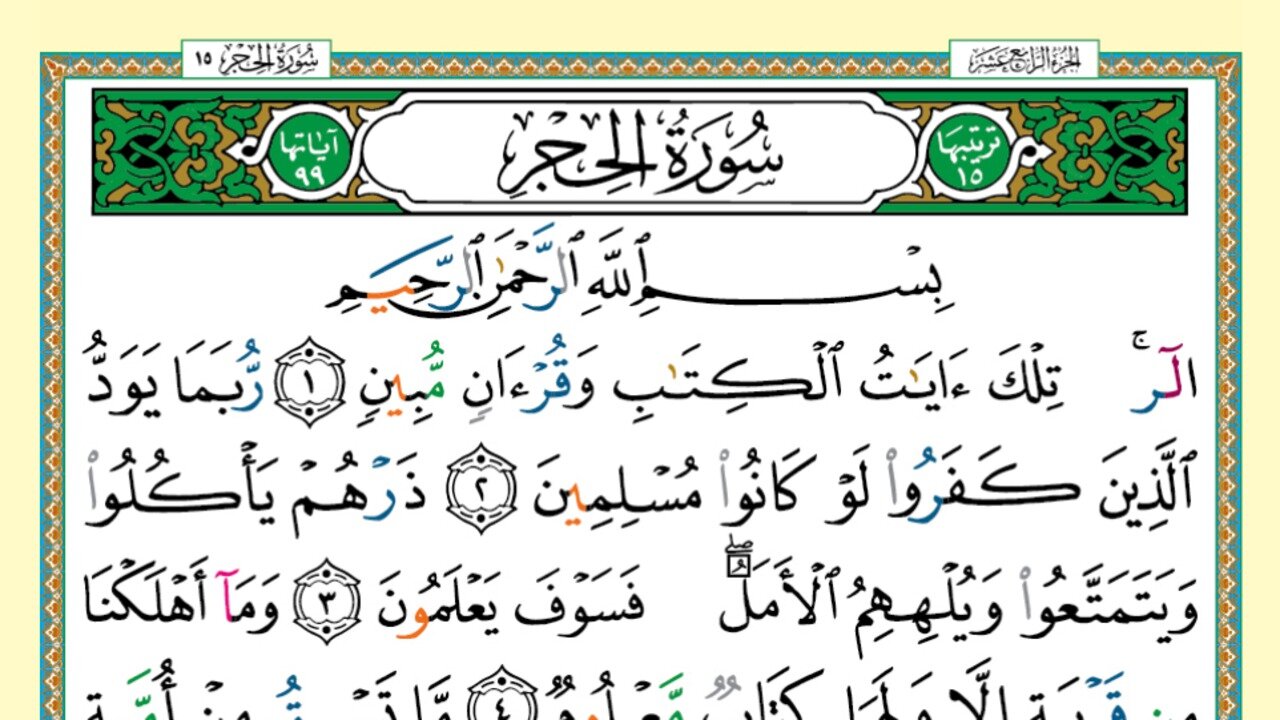 الجزء الرابع عشر
سورة الحجر ١٥
ترتيبها ١٥
سُورَةُ الحِجْرِ
آياتها ٩٩
بِسْمِ ٱللَّهِ ٱلرَّحْمَٰنِ ٱلرَّحِيمِ
الٓرۚ تِلْكَ ءَايَٰتُ ٱلْكِتَٰبِ وَقُرْءَانٍ مُّبِينٍ ١ رُّبَمَا يَوَدُّ
ٱلَّذِينَ كَفَرُوا۟ لَوْ كَانُوا۟ مُسْلِمِينَ ٢ ذَرْهُمْ يَأْكُلُوا۟
وَيَتَمَتَّعُوا۟ وَيُلْهِهِمُ ٱلْأَمَلُۖ فَسَوْفَ يَعْلَمُونَ ٣ وَمَآ أَهْلَكْنَا
مِن قَرْيَةٍ إِلَّا وَلَهَا كِتَابٌ مَّعْلُومٌ ٤ مَّا تَسْبِقُ مِنْ أُمَّةٍ